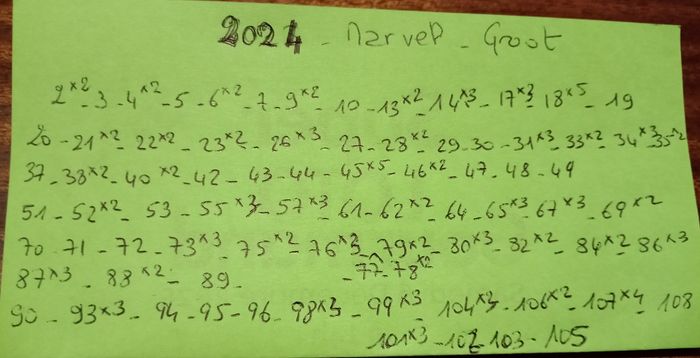 2024 - Marvel - Groot
2×2 - 3 - 4×2 - 5 - 6×2 - 7 - 9×2 - 10 - 13×2 - 14×3 - 17×3 - 18×5 - 19
20 - 21×2 - 22×2 - 23×2 - 26×3 - 27 - 28×2 - 29 - 30 - 31×3 - 33×2 - 34×3 - 35×2
37 - 38×2 - 40×2 - 42 - 43 - 44 - 45×5 - 46×2 - 47 - 48 - 49
51 - 52×2 - 53 - 55×3 - 57×3 - 61 - 62×2 - 64 - 65×3 - 67×3 - 69×2
70 - 71 - 72 - 73×3 - 75×2 - 76×3 - 79×2 - 80×3 - 82×2 - 84×2 - 86×3
87×3 - 88×2 - 89 - - 77 - 78×2
90 - 93×3 - 94 - 95 - 96 - 98×3 - 99×3 - 104×3 - 106×2 - 107×4 - 108
101×3 - 102 - 103 - 105